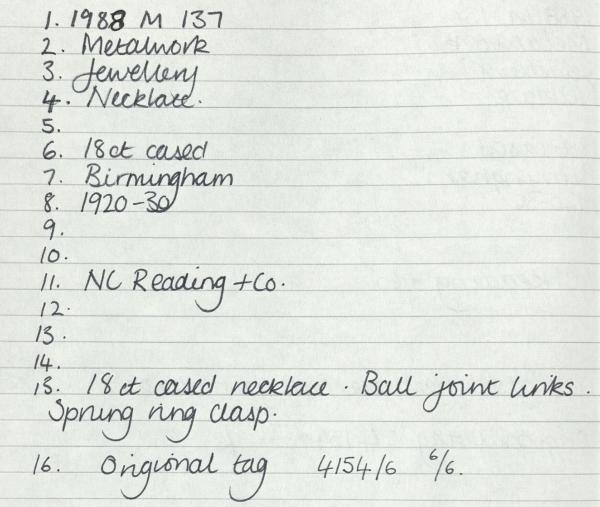 1. 1988 M 137
2. Metalwork
3. Jewellery
4. Necklace.
5.
6. 18ct cased
7. Birmingham
8. 1920-30
9.
10.
11. NC Reading + Co.
12.
13.
14.
15. 18ct cased necklace. Ball joint links.
Sprung ring clasp.
16. Origional tag 4154/6 6/6.